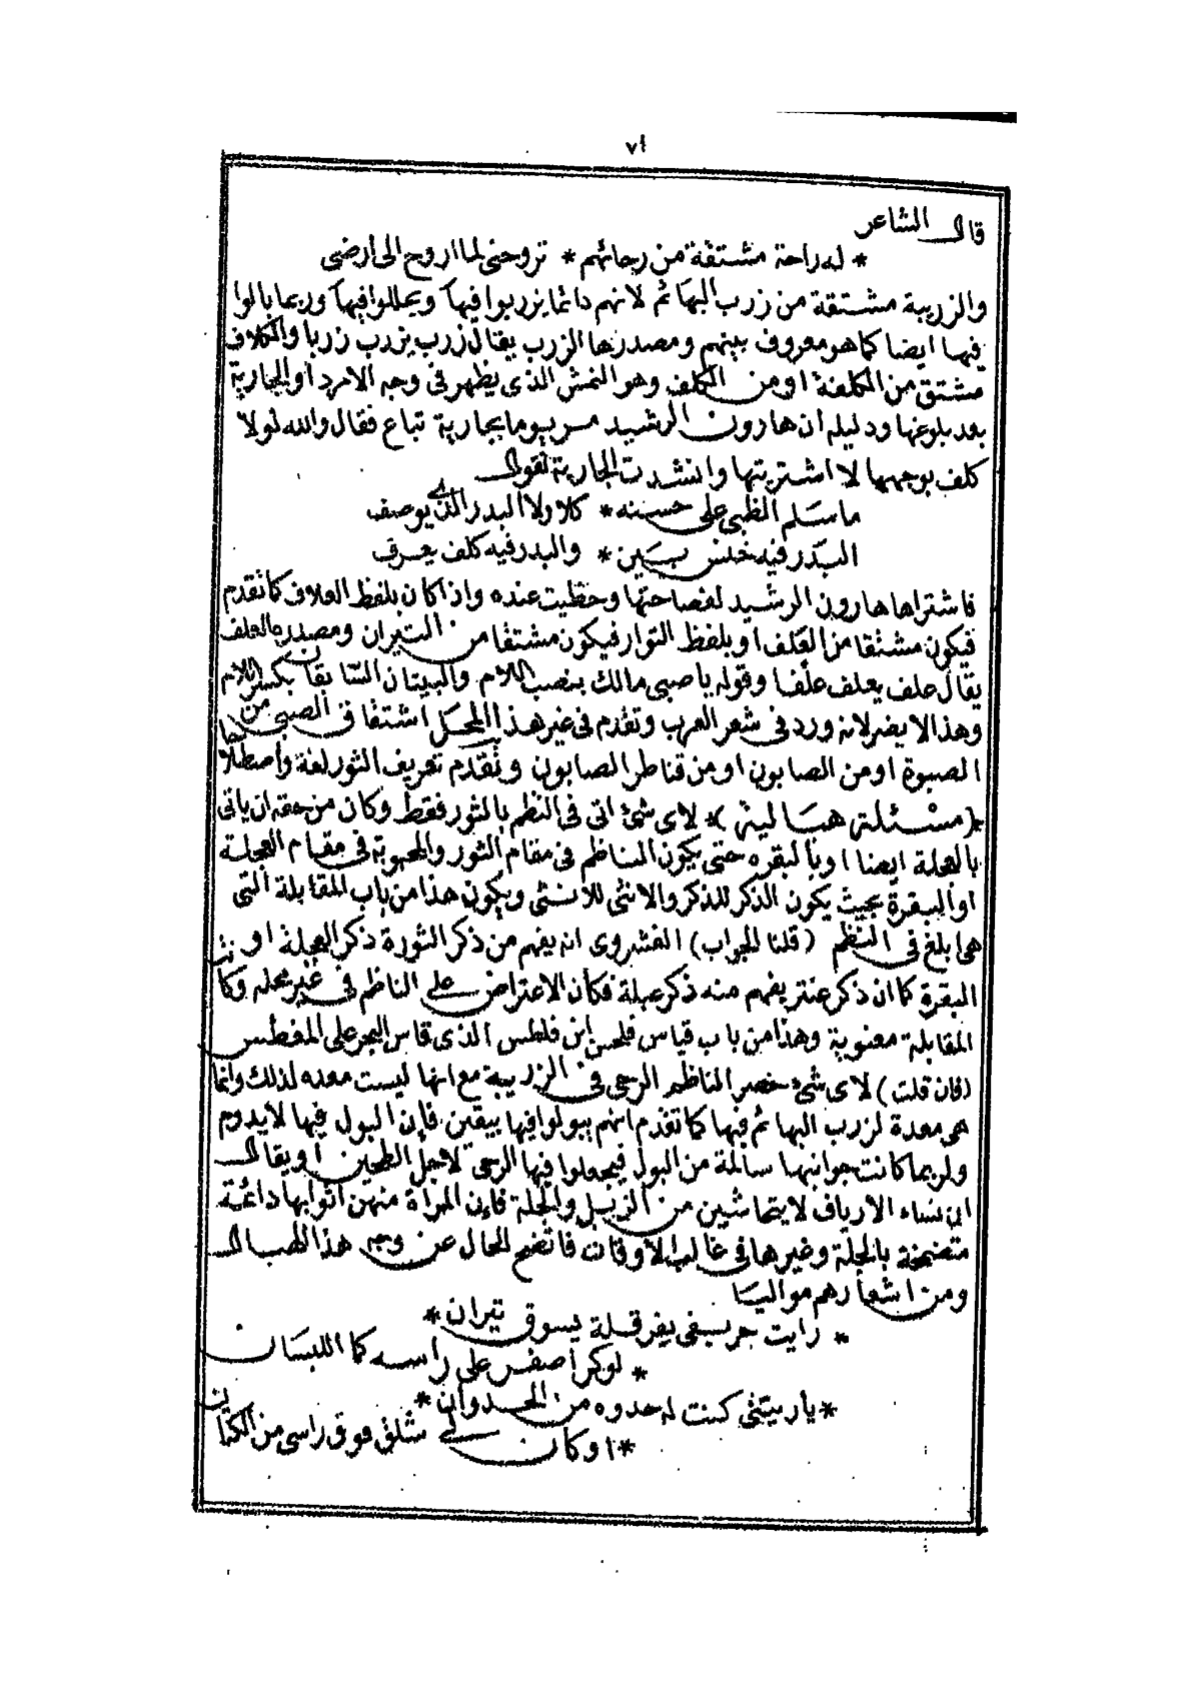 ٧١
قال الشاعر
* له راحة مشتقة من رجائهم * تروحنى لما اروح الى ارضى
والزريبة مشتقة من زرب البهائم لانهم دائما يزربوا فيها ويحللوا فيها وربما بالوا
فيها ايضا كما هو معروف بينهم ومصدرها الزرب يقال زرب يزرب زربا والكلاف
مشتق من الكلفة او من الكلف وهو النمش الذى يظهر فى وجه الامرد او الجارية
بعد بلوغها ودليله ان هارون الرشيد مر يوما بجارية تباع فقال والله لولا
كلف بوجهها لا اشتريتها وانشدت الجارية تقول
ما سلم الظبى على حسنه * كلا ولا البدر الذى يوصف
البدر فيه خنس بين * والبدر فيه كلف يعرف
فاشتراها هارون الرشيد لفصاحتها وحظيت عنده واذا كان بلفظ العلاف كما تقدم
فيكون مشتقا من العلف او بلفظ التوار فيكون مشتقا من التيران ومصدره العلف
يقال علف يعلف علفا وقوله يا صبى مالك بنصب اللام والبيتان السابقان بكسر اللام
وهذا لا يضر لانه ورد فى شعر العرب وتقدم فى غير هذا المحل اشتقاق الصبى من
الصبوة او من الصابون او من قناطر الصابون وتقدم تعريف الثور لغة واصطلاحا
* (مسئلة هبالية) * لاى شئ اتى فى النظم بالثور فقط وكان من حقه ان ياتى
بالعجلة ايضا او بالبقره حتى يكون الناظم فى مقام الثور والمحبوبة فى مقام العجلة
او البقرة بحيث يكون الذكر للذكر والانثى للانثى ويكون هذا من باب المقابلة التى
هى ابلغ فى النظم (قلنا الجواب) الفشروى انه يفهم من ذكر الثورة ذكر العجلة او
البقرة كما ان ذكر عنتر يفهم منه ذكر عبلة فكان الاعتراض على الناظم فى غير محله وكانت
المقابلة معنوية وهذا من باب قياس فلحس ابن فلطس الذى قاس البحر على المغطس
(فان قلت) لاى شئ حصر الناظم الرحى فى الزريبة مع انها ليست معده لذلك وانما
هى معدة لزرب البهائم فيها كما تقدم انهم يبولوا فيها بيقين فان البول فيها لا يدوم
ولربما كانت جوانبها سالمة من البول فيجعلوا فيها الرحى لاجل الطحين او يقال
ان نساء الارياف لا يتحاشين من الزبل والجلة فان المراة منهن اثوابها دائمة
متضمخة بالجلة وغيرها فى غالب الاوقات فاتضح الحال عن وجه هذا الهبال
ومن اشعارهم مواليا
* رايت حريبفى بفرقلة يسوق تيران *
* لوكر اصفر على راسه كما اللبسان
* ياريتنى كنت له حدوه من الحدوان *
* او كان لى شلق فوق راسى من الكتان